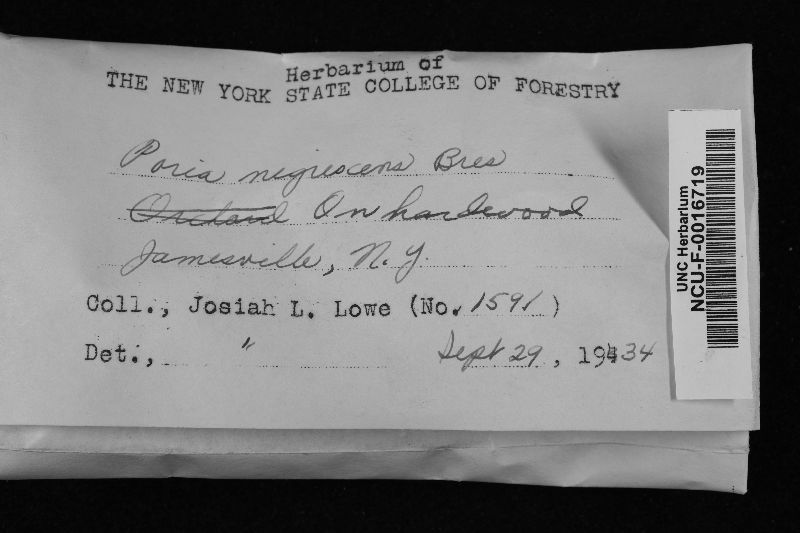 Herbarium of
THE NEW YORK STATE COLLEGE OF FORESTRY
Poria nigrescens Bres
On hardwood
Jamesville, N.Y.
Coll., Josiah L. Lowe (No. 1591)
Det., " Sept 29, 1934
UNC Herbarium
NCU-F-0016719